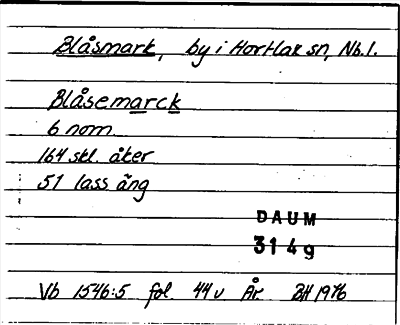 Blåsmark, by i Hortlax sn, Nb.l.
Blåsemarck
6 nom
164 skl. åker
51 lass äng
DAUM
3149
Vb 1546:5 fol 44 v År BH 1976